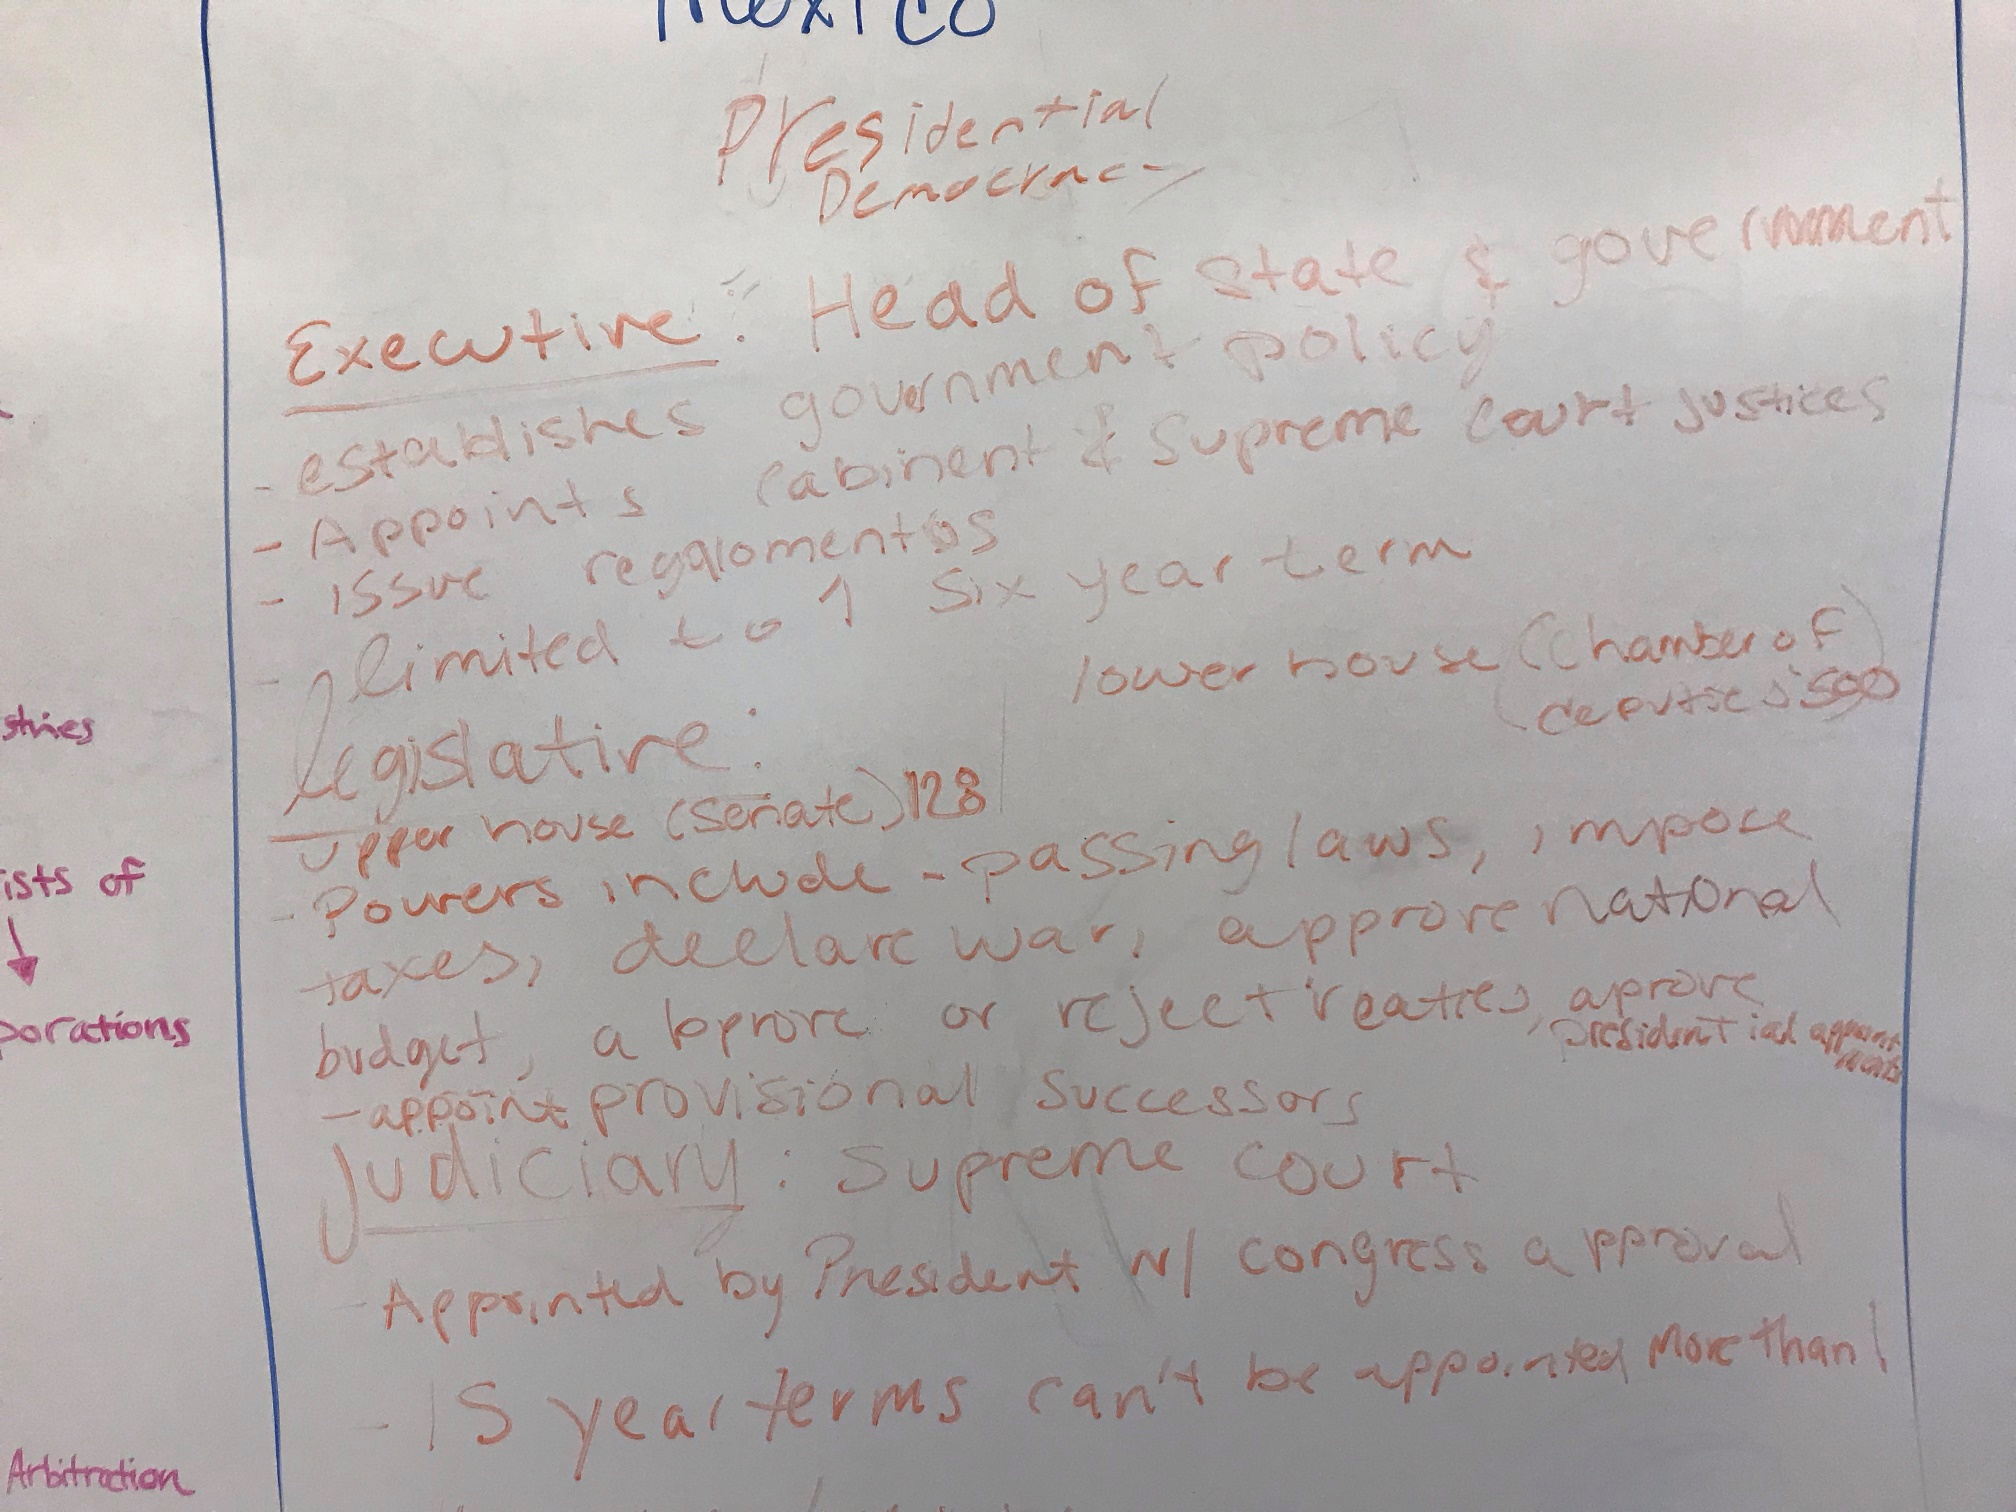 Mexico
Presidential
Democracy
Executive: Head of state & government
- establishes government policy
- Appoints cabinent & Supreme Court justices
- issue regalomentos
- limited to 1 six year term
lower house (Chamber of
deputies) 500
legislative:
upper house (senate) 128
- Powers include - passing laws, impoce
taxes, declare war, approve national
budget, abprove or reject treaties, aprove
presidential appoint
ments
- appoint provisional successors
Judiciary: Supreme Court
- Appointed by President w/ congress approval
- 15 year terms can't be appointed more than 1
stries
ists of
porations
Arbitration